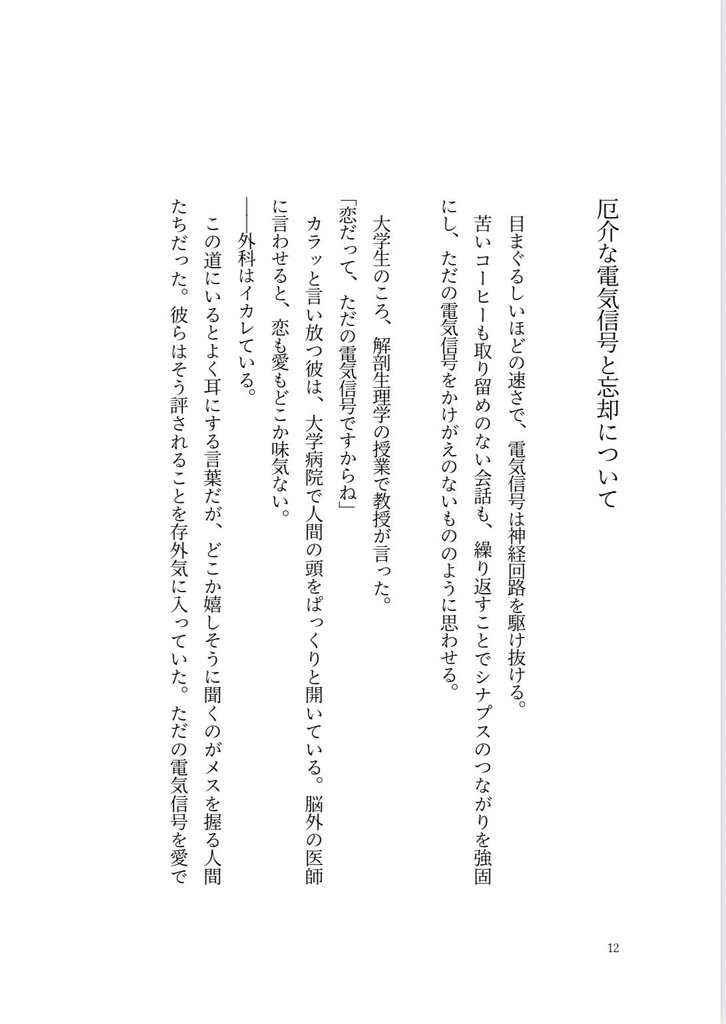 厄介な電気信号と忘却について
目まぐるしいほどの速さで、電気信号は神経回路を駆け抜ける。
苦いコーヒーも取り留めのない会話も、繰り返すことでシナプスのつながりを強固
にし、ただの電気信号をかけがえのないもののように思わせる。
大学生のころ、解剖生理学の授業で教授が言った。
「恋だって、ただの電気信号ですからね」
カラッと言い放つ彼は、大学病院で人間の頭をぱっくりと開いている。脳外の医師
に言わせると、恋も愛もどこか味気ない。
――外科はイカレている。
この道にいるとよく耳にする言葉だが、どこか嬉しそうに聞くのがメスを握る人間
たちだった。彼らはそう評されることを存外気に入っていた。ただの電気信号を愛で
12